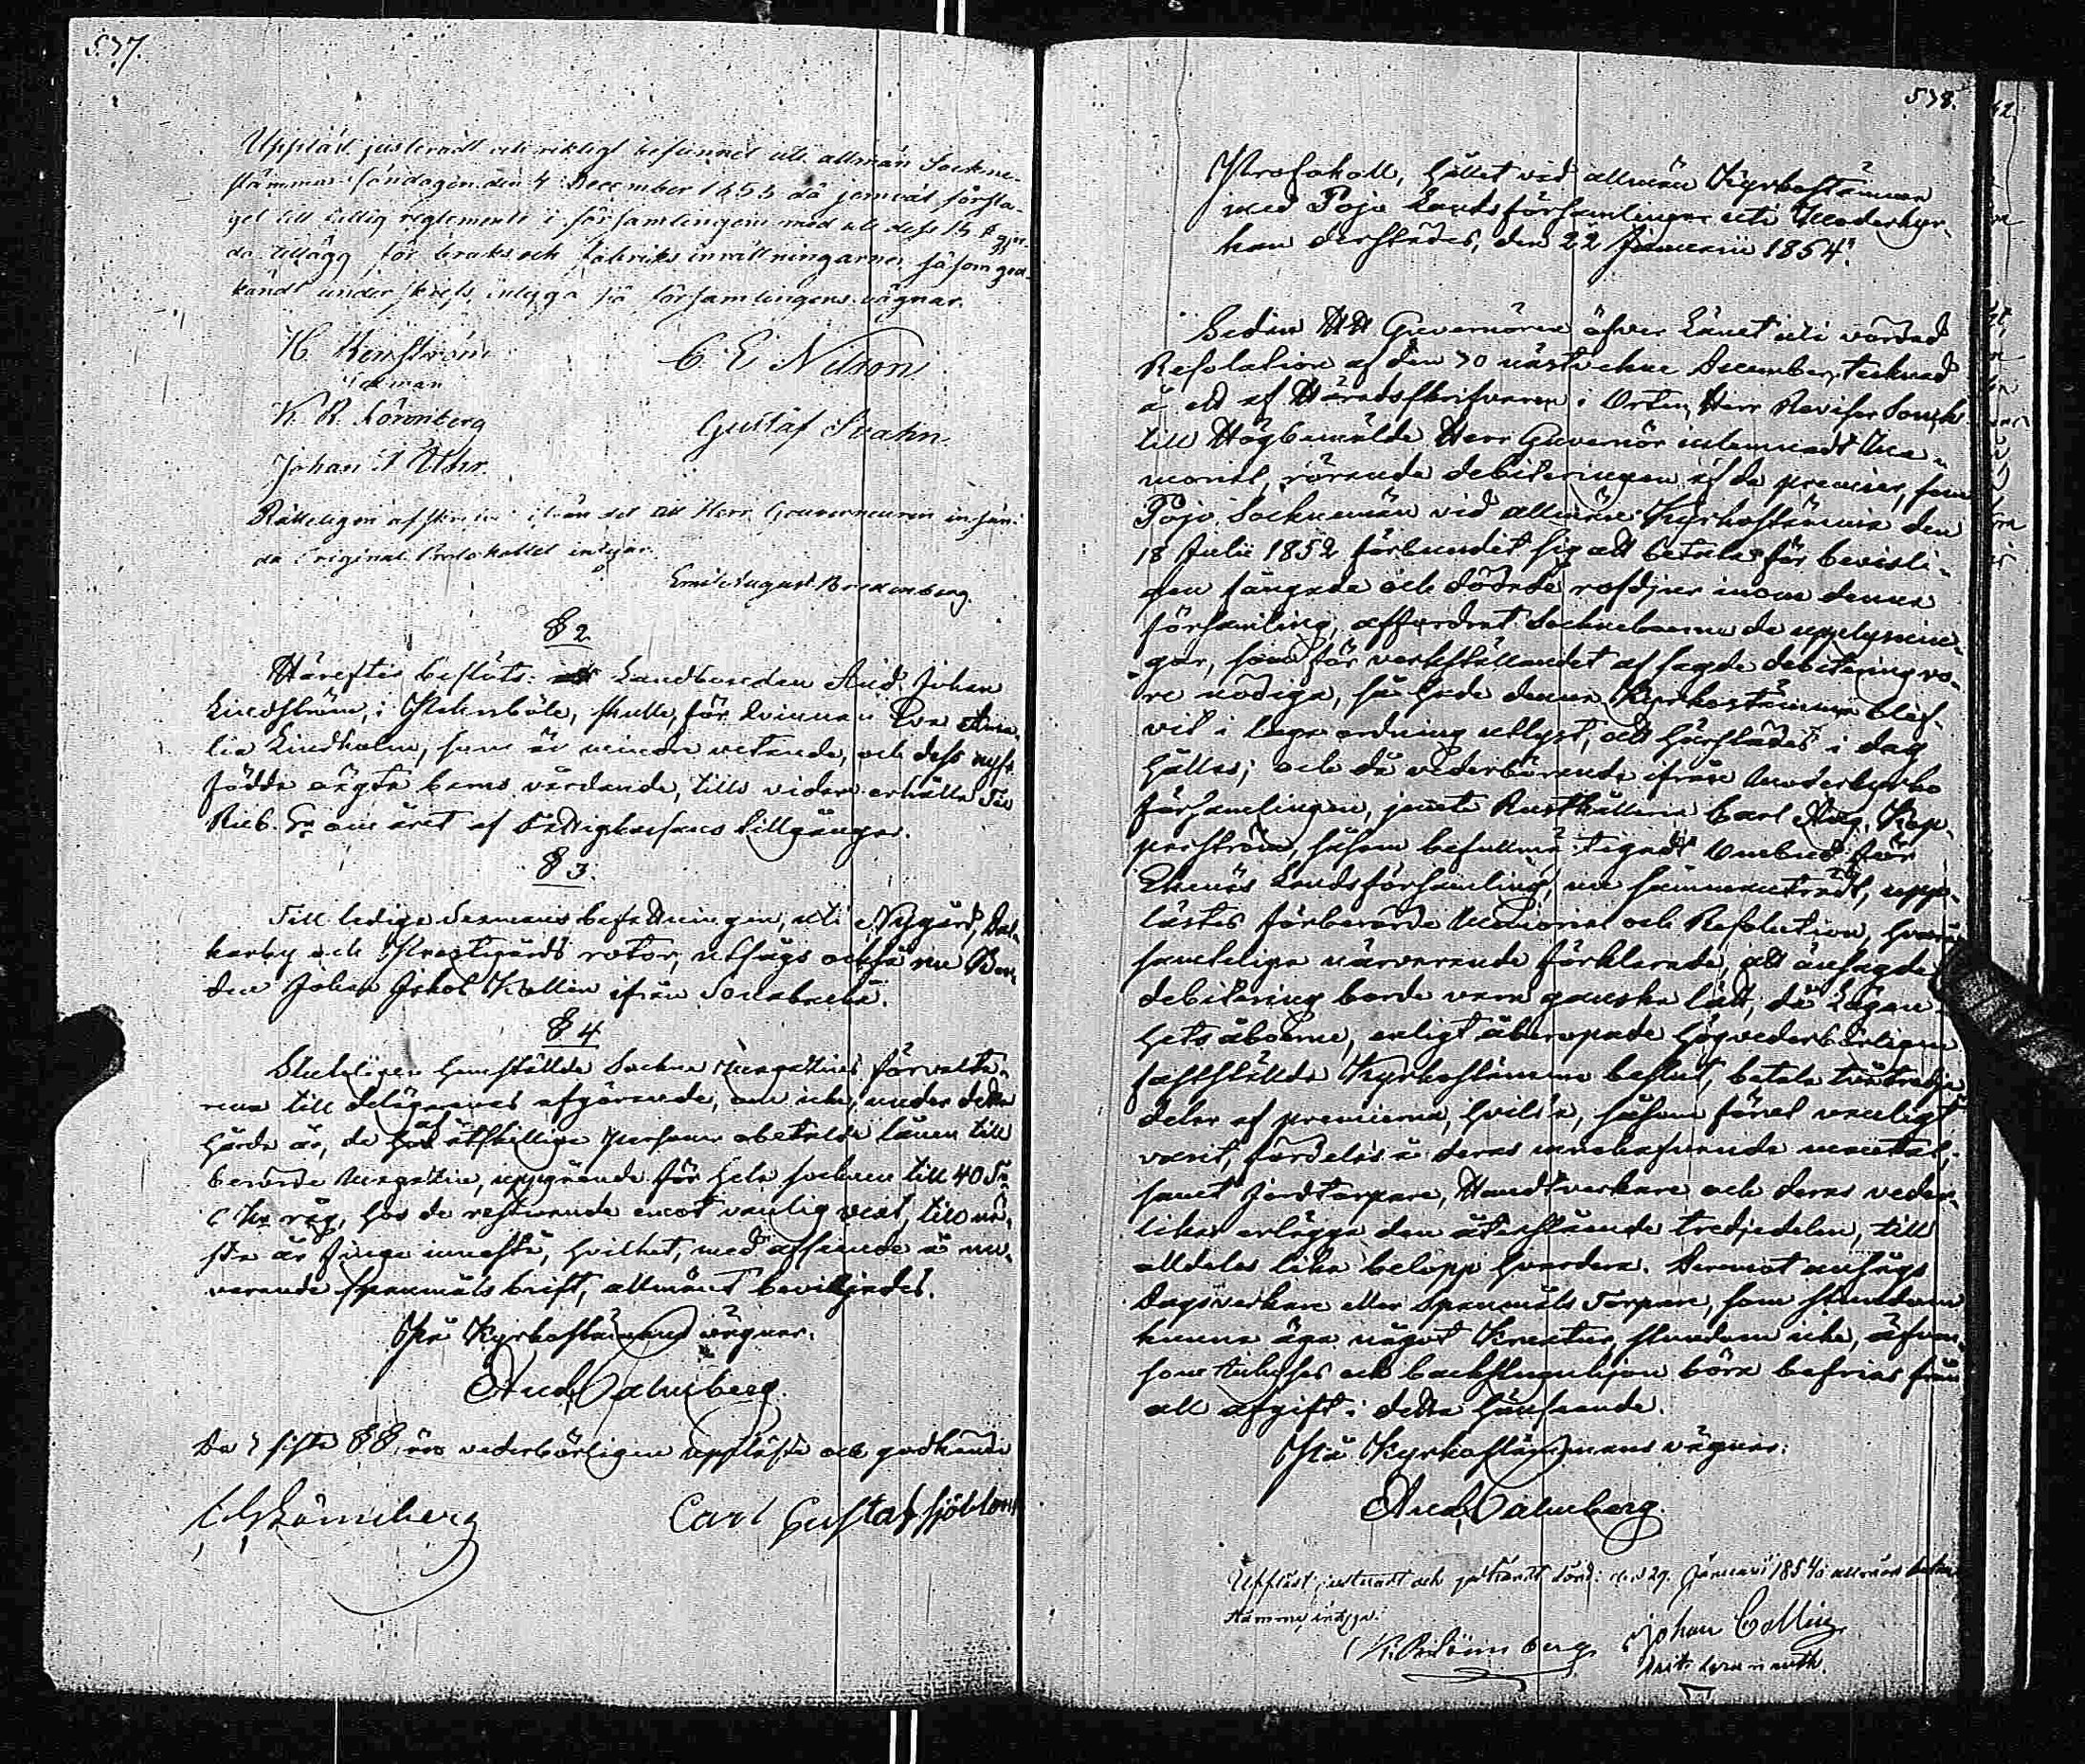 537.
Uppläst, justeradt och riktigt befunnet uti allmän Sockne-
stämma Söndagen den 4 December 1853 då jemväl försla-
get till tillig reglemente i församlingen med uti dess 15 § gjor-
da tillägg för bruks och fabriks inrättningarne såsom god-
kändt underskrefs, intyga på församlingens vägnar.
H. Renström C. E. Nilson
K. R. Lönnberg Gustaf Svahn.
Johan
Rätteligen afskrifvit ifrån det till Herr Gouverneuren insän-
da Original Protokollet intygar
Emil August Bredenberg.
§ 2.
Härefter beslöts: att Landbonden And. Johan
Lindström, i Starrböle, skulle, för qvinnan Eva Ama-
lia Lindholm, som är mindre vetande, och dess nyss
födda oägta barns vårdande, tills vidare erhålla Tio
Rub. Sr om året af Fattigkassans tillgångar.
§ 3.
Till ledige Sexmans befattningen, uti Nygård, Dal-
karby och Prestgårds rotor, utsågs också nu Bon-
den Johan Jakob Kollin ifrån Sonabacka.
§ 4
Slutligen hemställde Sockne Magazins förvalta-
rena till delägarenes afgörande, om icke, under detta
hårda år, de af åtskillige personer obetalde lånen till
berörde Magazin, uppgående för hela socknen till 40 Tr
6 Kr råg, hos de resterande emot vanlig vext, till nä-
sta år finge innestå, hvilket, med afseende å nu-
varande spannmåls brist, allmänt beviljades.
På Kyrkostämmans vägnar:
And. Malmberg.
De 3 sista §§ äro vederbörligen uppläste och godkände
Lönnberg Carl Gustaf Sjöblom
538.
Protokoll, hållet vid allmän Kyrkostämma
med Pojo Landsförsamlingen uti Moderkyr-
kan derstädes, den 22 Januarii 1854.
Sedan Hr Guvernören öfver Länet uti vördad
Resolution af den 30 nästvekne December, tecknad
å ett af Häradsskrifvaren i Orten, Herr Revisor
till Högbemälde Herr Guvernör inlemnadt Me-
morial, rörande debiteringen af de premier, som
Pojo Socknemän vid allmän Kyrkostämma den
18 Julii 1852 förbundit sig att betala för bevisli-
gen fångade och dödade rofdjur inom denna
församling, affordrat Sockneboerne de upplysnin-
gar, som för verkställandet af sagde debitering vo-
re nödiga, så hade denna Kyrkostämma blif-
vit i laga ordning utlyst, att härstädes i dag
hållas; och då vederbörande ifrån Moderkyrko
församlingen, jemte Rusthållaren Carl Aug. Kop-
parström, såsom befullmäktigadt Ombud för
Ekenäs Landsförsamling, nu sammanträdt, upp-
lästes förberörde Memorial och Resolution, hvarå
samtelige närvarande förklarade, att ånsagde
debitering borde vara ganska lätt, då Lägen-
hets åboerne, enligt åberopade högvederbörligen
fastställde Kyrkostämma beslut, betala två tredje
delar af premierna, hvilka, såsom förut vanligt
varit, fördelas å deras innehafvande mantal,
samt Jordtorpare, Handtverkare och deras veder-
likar erlägga den återstående tredjedelen, till
alldeles lika belopp hvardera. Deremot ansågs
Dagsverkare eller Spannmåls Torpare, som stundom
kunna äga något Kreatur, stundom icke, äfven-
som inhyses och backstuguhjon böra befrias från
all afgift i detta hänseende.
På Kyrkostämmans vägnar:
And. Malmberg.
Uppläst, justeradt och godkändt Sönd: den 29. Januarii 1854 i allmän
stämma, intyga.
K. R. Lönnberg Johan Collin